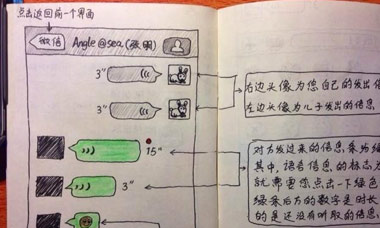 点击返回前一个界面
微信 Angle@sea(张明)
3"
3"
右边头像为您自己的发出信
左边头像为儿子发出的信息
15"
3"
对方发过来的信息,来为绿
其中,语音信息的标志为
就需要您点击一下绿色
绿条后方的数字是时长
的是还没有听取的信息